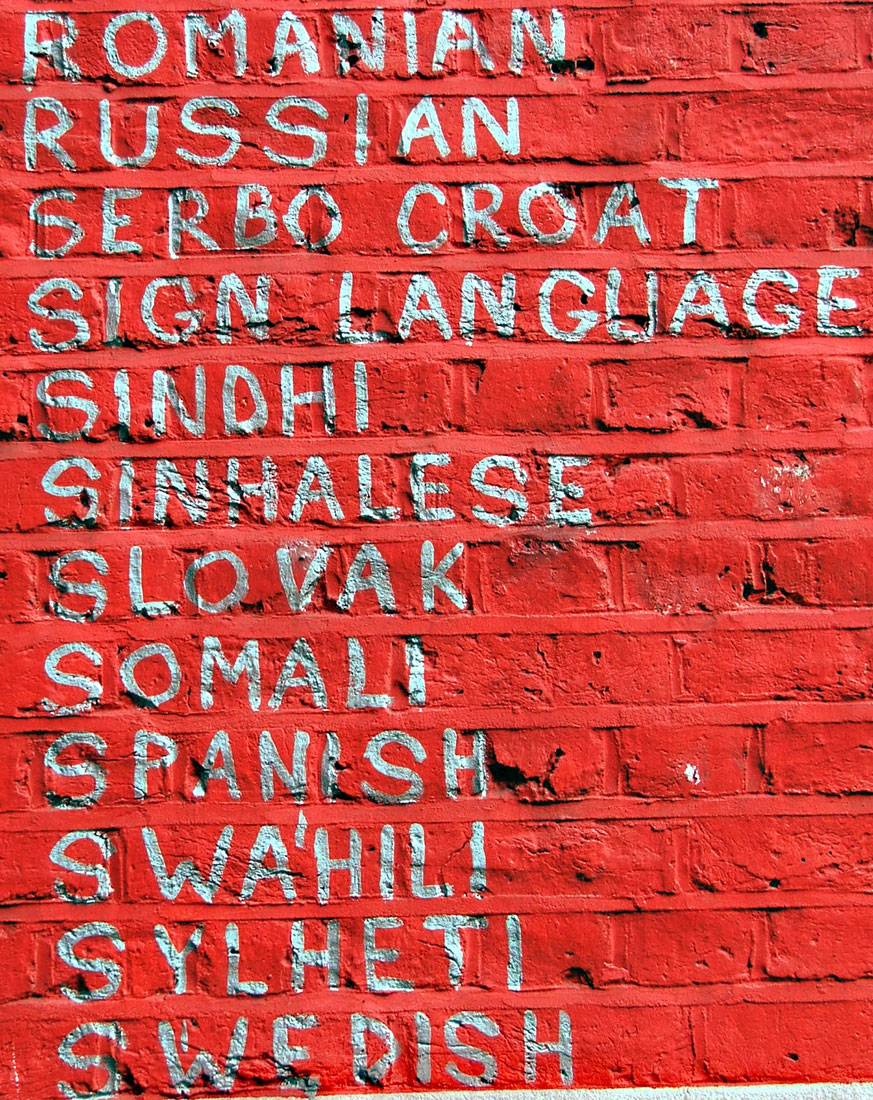 ROMANIAN
RUSSIAN
SERBO CROAT
SIGN LANGUAGE
SINDHI
SINHALESE
SLOVAK
SOMALI
SPANISH
SWA'HILI
SYLHETI
SWEDISH